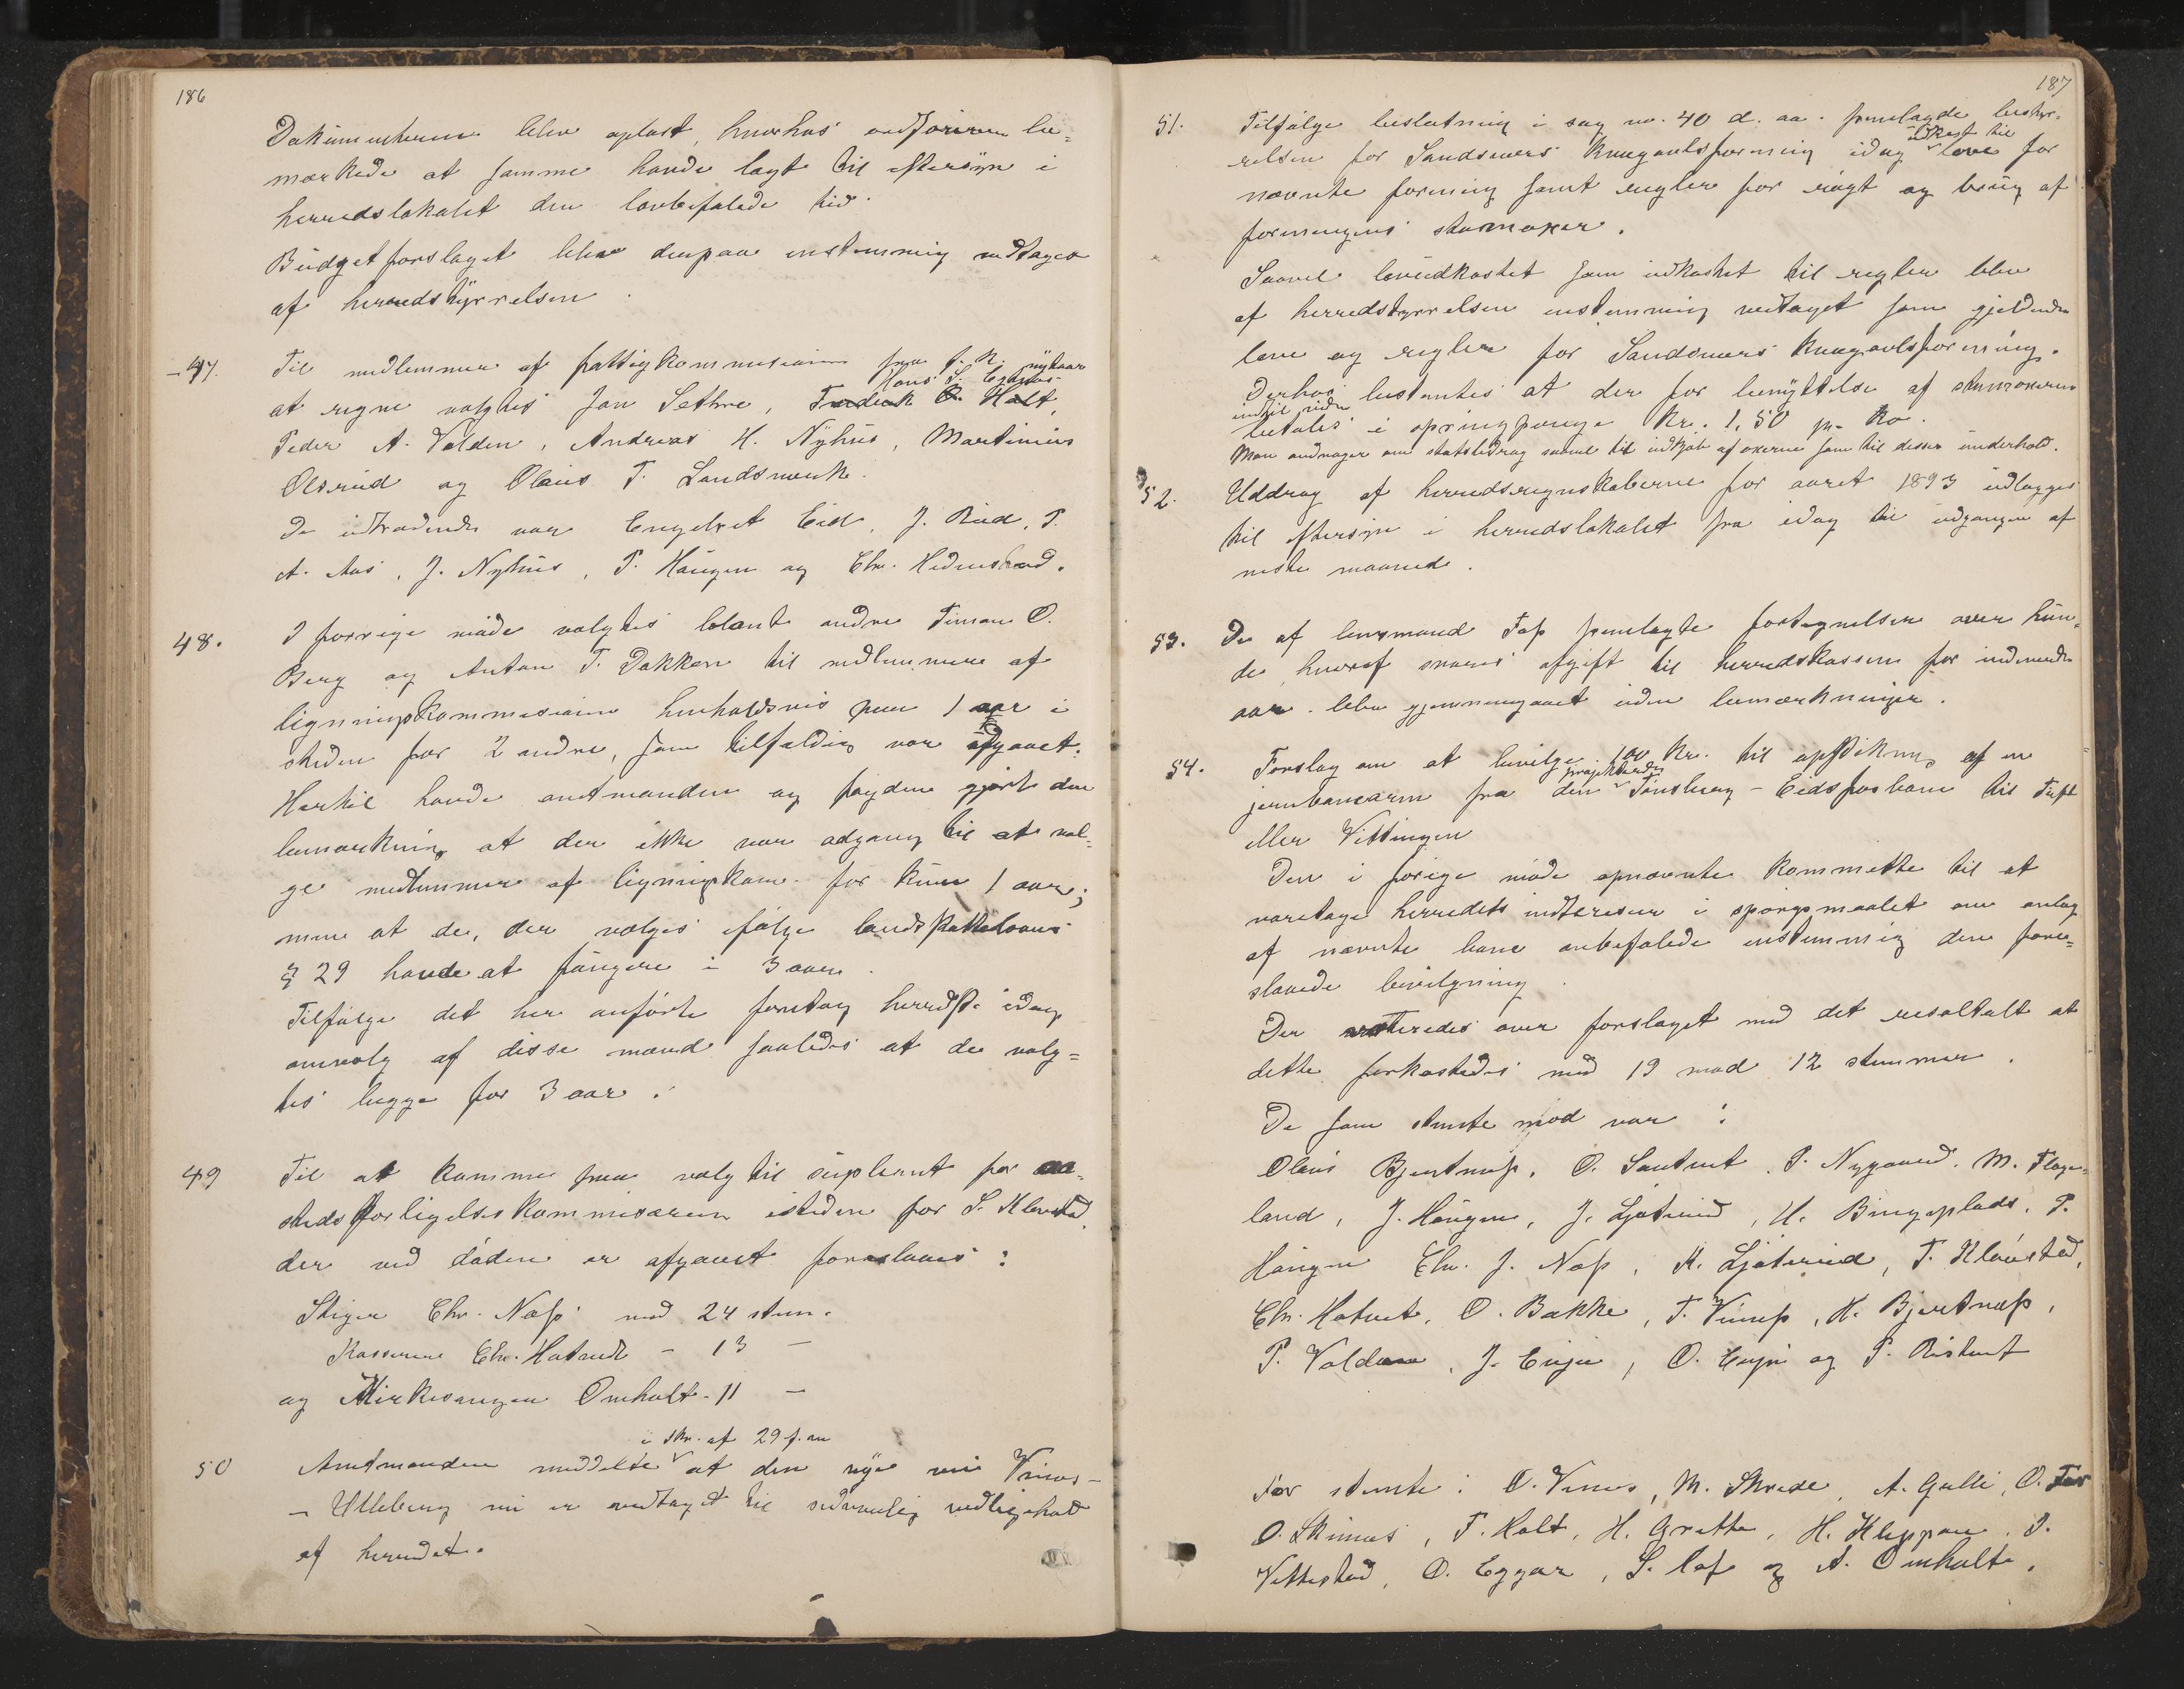 186
Dokumenterne blev oplæst, hvorhos ordføreren be-
mærkede at samme havde lagt til eftersyn i
herredslokalet den lovbefalede tid.
Budgetforslaget blev derpaa enstemmig vedtaget
af herredstyrrelsen.
47. Til medlemmer af fattigkommissionen fra f. k. nytaar
Hans S.
at regne valgtes Jon Sethre, Frederik O. Holt,
Peder A. Volden, Andreas H. Nyhus, Martinius
Olsrud og Olaus T. Landsverk.
De udtrædende var Engebret Eid, J. Rud, P.
A. Aas, J. Nyhus, P. Haugen og Chr. Hedenstad.
48. I forrige møde valgtes blant andre Simon O.
Berg og Anton T. Dokken til medlemmer af
ligningskommissionen henholdsvis paa 1 aar i
steden for 2 andre, som tilfældig var afgaaet.
Hertil havde amtmanden og fogden gjort den
bemærkning at der ikke var adgang til at væl-
ge medlemmer af ligningskom. for kun 1 aar;
men at de, der vælges ifølge landskattelovens
§ 29 havde at fungere i 3 aar.
Tilfølge det her anførte foretog herredsst. idag
omvalg af disse mænd saaledes at de valg-
tes begge for 3 aar.
49 Til at komme paa valg til supleant for aa-
stedsforligelseskommisæren isteden for S. Klovstad,
der ved døden er afgaaet foreslaaes:
Stiger Chr. Næss med 24 stem.
Kasserer Chr. Hatvedt - 13 -
og Kirkesanger Omholt - 11 -
i skr. af 29 f. m
50 Amtmanden meddelte at den nye vei Vinæs-
- Ulleberg nu er modtaget til sedvanlig vedligehold
af herredet.
187
51. Tilfølge beslutning i sag no. 40 d. aa. fremlagde besty-
udkast til
relsen for Sandsværs kvægavlsforening idag love for
nævnte forening samt regler for røgt og brug af
foreningens stamoxer.
Saavel lovudkastet som udkastet til regler blev
af herredstyrrelsen enstemmig vedtaget som gjeldende
love og regler for Sandsværs kvægavlsforening.
Derhos bestemtes at der for benyttelse af stamoxerne
indtil videre
betales i springpenge Kr. 1,50 pr. ko.
Man andrager om statsbidrag saavel til indkjøb af oxerne som til disses underhold.
52. Uddrag af herredsregnskaberne for aaret 1893 udlægges
til eftersyn i herredslokalet fra idag til udgangen af
neste maaned.
53. De af lensmand Fos fremlagte fortegnelser over hun-
de, hvoraf svares afgift til herredskassen for indeværende
aar. blev gjennemgaaet uden bemærkninger.
54. Forslag om at bevilge 100 Kr. til opstikning af en
projekterede
jernbanearm fra den Tønsberg - Eidsfosbane til Tuft
eller Vittingen
Den i forige møde opnævnte kommitte til at
varetage herredets interesser i spørgsmaalet om anlæg
af nævnte bane anbefalede enstemmig den fore-
slaaede bevilgning.
Der voteredes over forslaget med det resultat at
dette forkastedes med 19 mod 12 stemmer.
De som stemte mod var:
Olaus Bjertnæss, O. Santvet, P. Nygaard, M. Flage-
land, J. Haugen, J. Ljøterud, H. Bingsplads, P.
Haugen Chr. J. Næss, K. Ljøterud, T. Klovstad,
Chr. Hatvet, O. Bakke, T. Vinæss, H. Bjertnæss,
P. Volden, J. Enge, O. Enge og P. Ristvet
For stemte: O. Vinæs, M. Skrede, A. Gulli, O. Fos
O. Skinnes, F. Holt, H. Grette, H. Kleppen, P.
Vittestad, O. Eggar, S. Løf og A. Omholt.